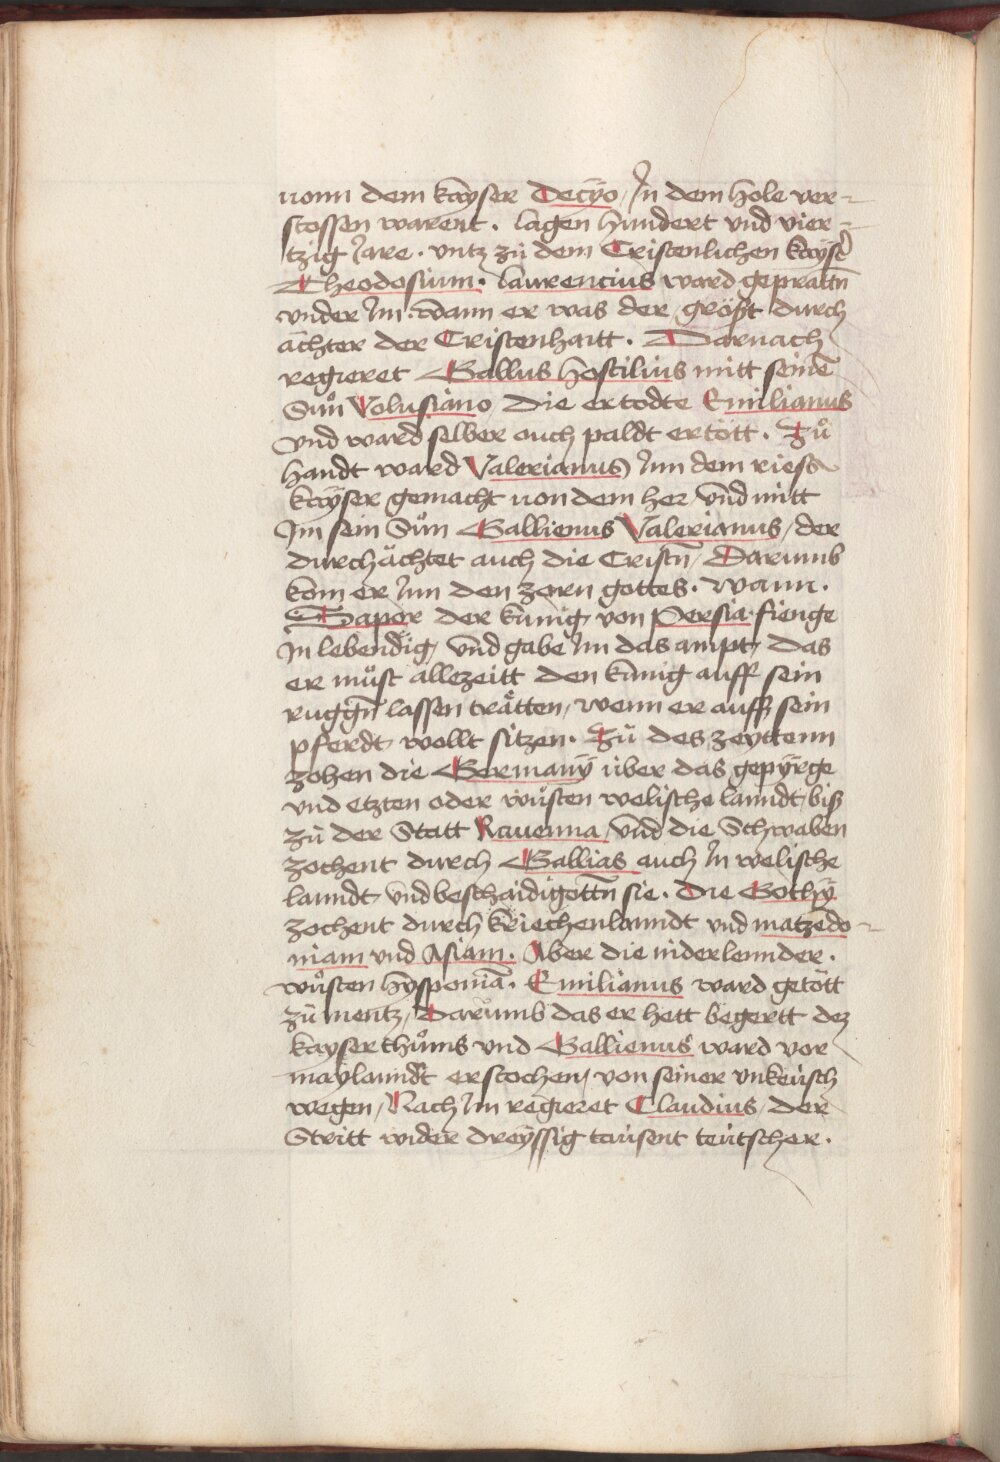 vonn dem kayser Decÿo / In dem hole ver-
stossen warent. lagen hundert vnd vier-
tzig Jare. vntz zů dem Cristenlichen kaysr̄
Theodosium. laurencius ward geprattn̄
vnder Im. wann er was der gröst durch
ächter der Cristenhaitt. Darnach
regieret Gallus hostilius mitt seinē
Sůn Volusiano Die ertodte Emilianus
vnd ward selber auch paldt ertött. Zů
handt ward Valerianus Inn dem riess
kayser gemacht von dem her vnd mitt
Im sein Sůn Gallienus Valerianus / der
durchächtet auch die Cristn̄ / Darumb
kom er Inn den zorn gottes. wann.
Sapor der kunig von Persia fienge
In lebendig / vnd gabe Im das ampt / das
er můst allezeitt den kunig auff sein
ruggn̄ lassen trätten / wenn er auff sein
pferdt wollt sitzen. Zů des zeyttenn
zohen die Germanÿ über das gepÿrge
vnd etzten oder wůsten welische lanndt / biß
zů der Statt Rauenna / vnd die Schwaben
zochent durch Gallias auch In welische
lanndt vnd beschaidigottn̄ sie. Die Gothÿ
zochent durch kriechenlanndt vnd matzedo-
niam vnd Asiam. Aber die niderlennder.
wůsten hÿsponiā. Emilianus ward getött
zů mentz / Darumb das er hett begertt dez
kayserthůms vnd Gallienus ward vor
maylanndt erstochen / von seiner vnkeüsch
wegen / Nach Im regieret Claudius / der
Stritt wider dreÿssig tausent teütscher.